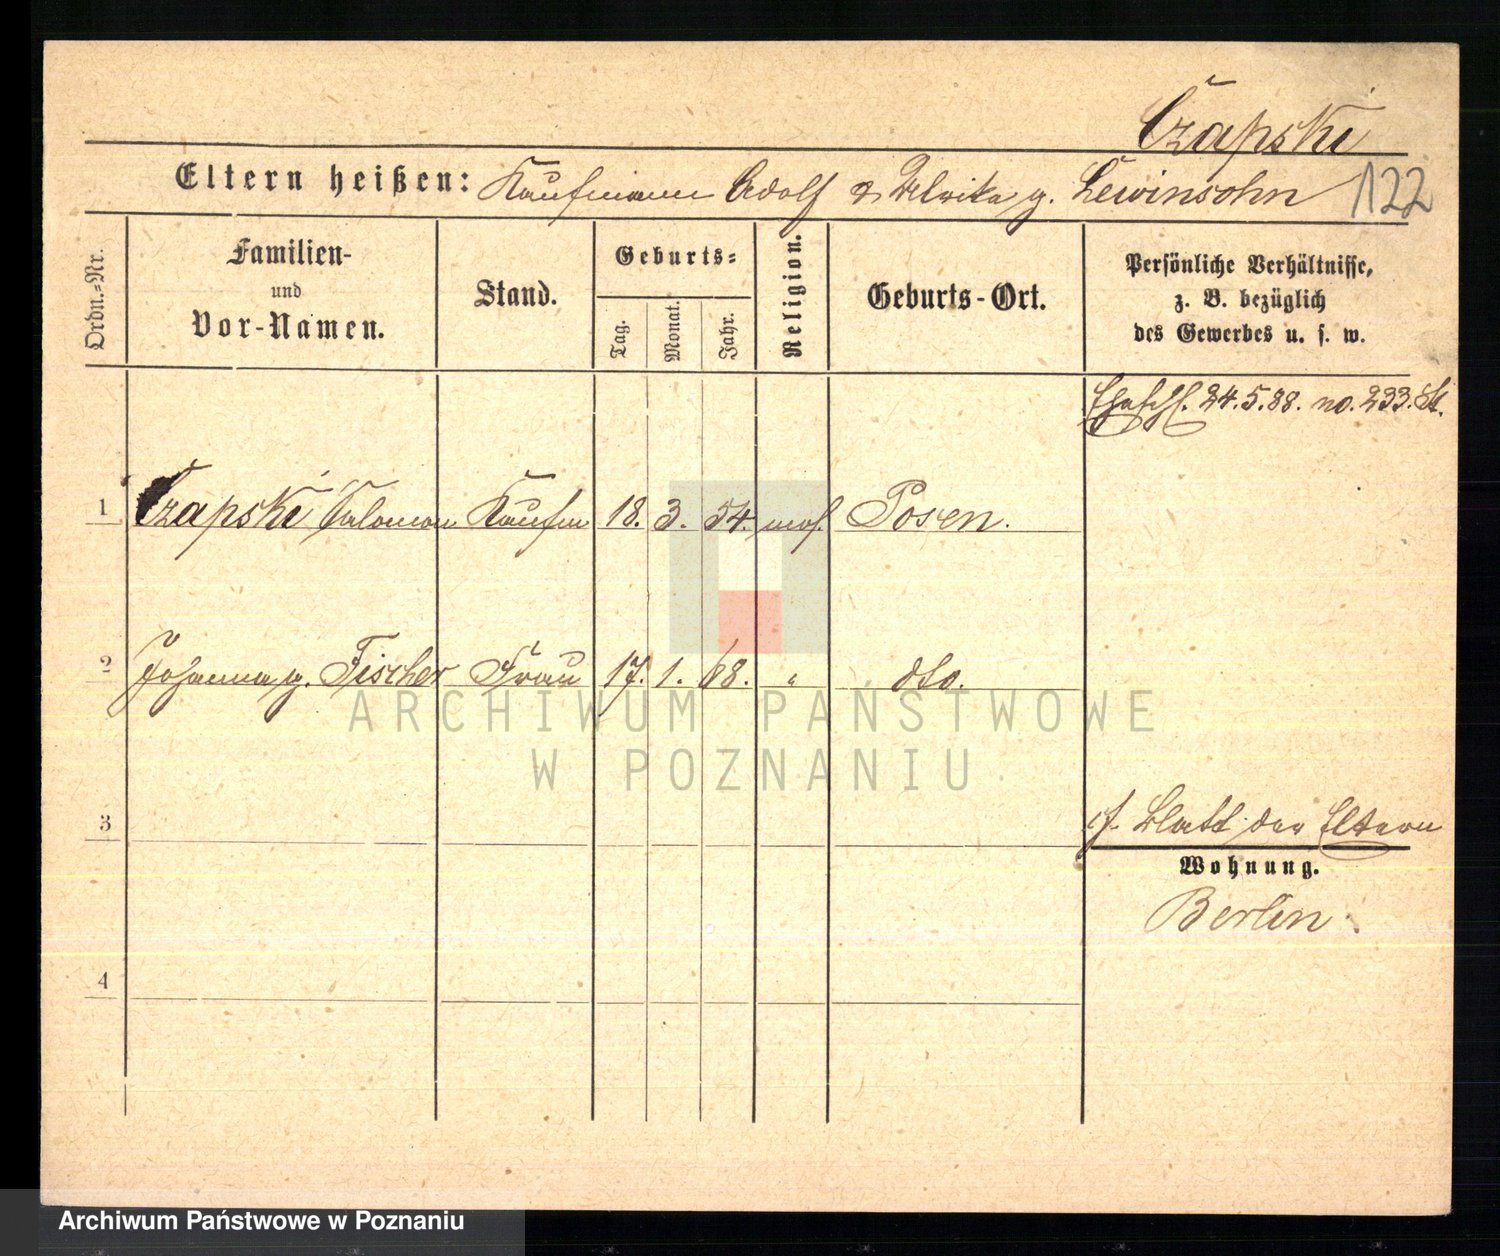 Czapski
Eltern heißen: Kaufmann Adolf & Ulrike g. Lewinsohn 122
Ordn.-Nr.
Familien-
und
Vor-Namen.
Stand.
Geburts-
Tag.
Monat.
Jahr.
Religion.
Geburts-Ort.
Persönliche Verhältnisse,
z. B. bezüglich
des Gewerbes u. s. w.
24.5.88. no. 233. St.
1 Czapski Salomon Kaufm 18. 3. 54. mos. Posen.
2 Johanna g. Fischer Frau 17. 1. 68. " dto.
ARCHIWUM PAŃSTWOWE
W POZNANIU
3
cf. Blatt der Eltern
Wohnung.
Berlin.
4
Archiwum Państwowe w Poznaniu